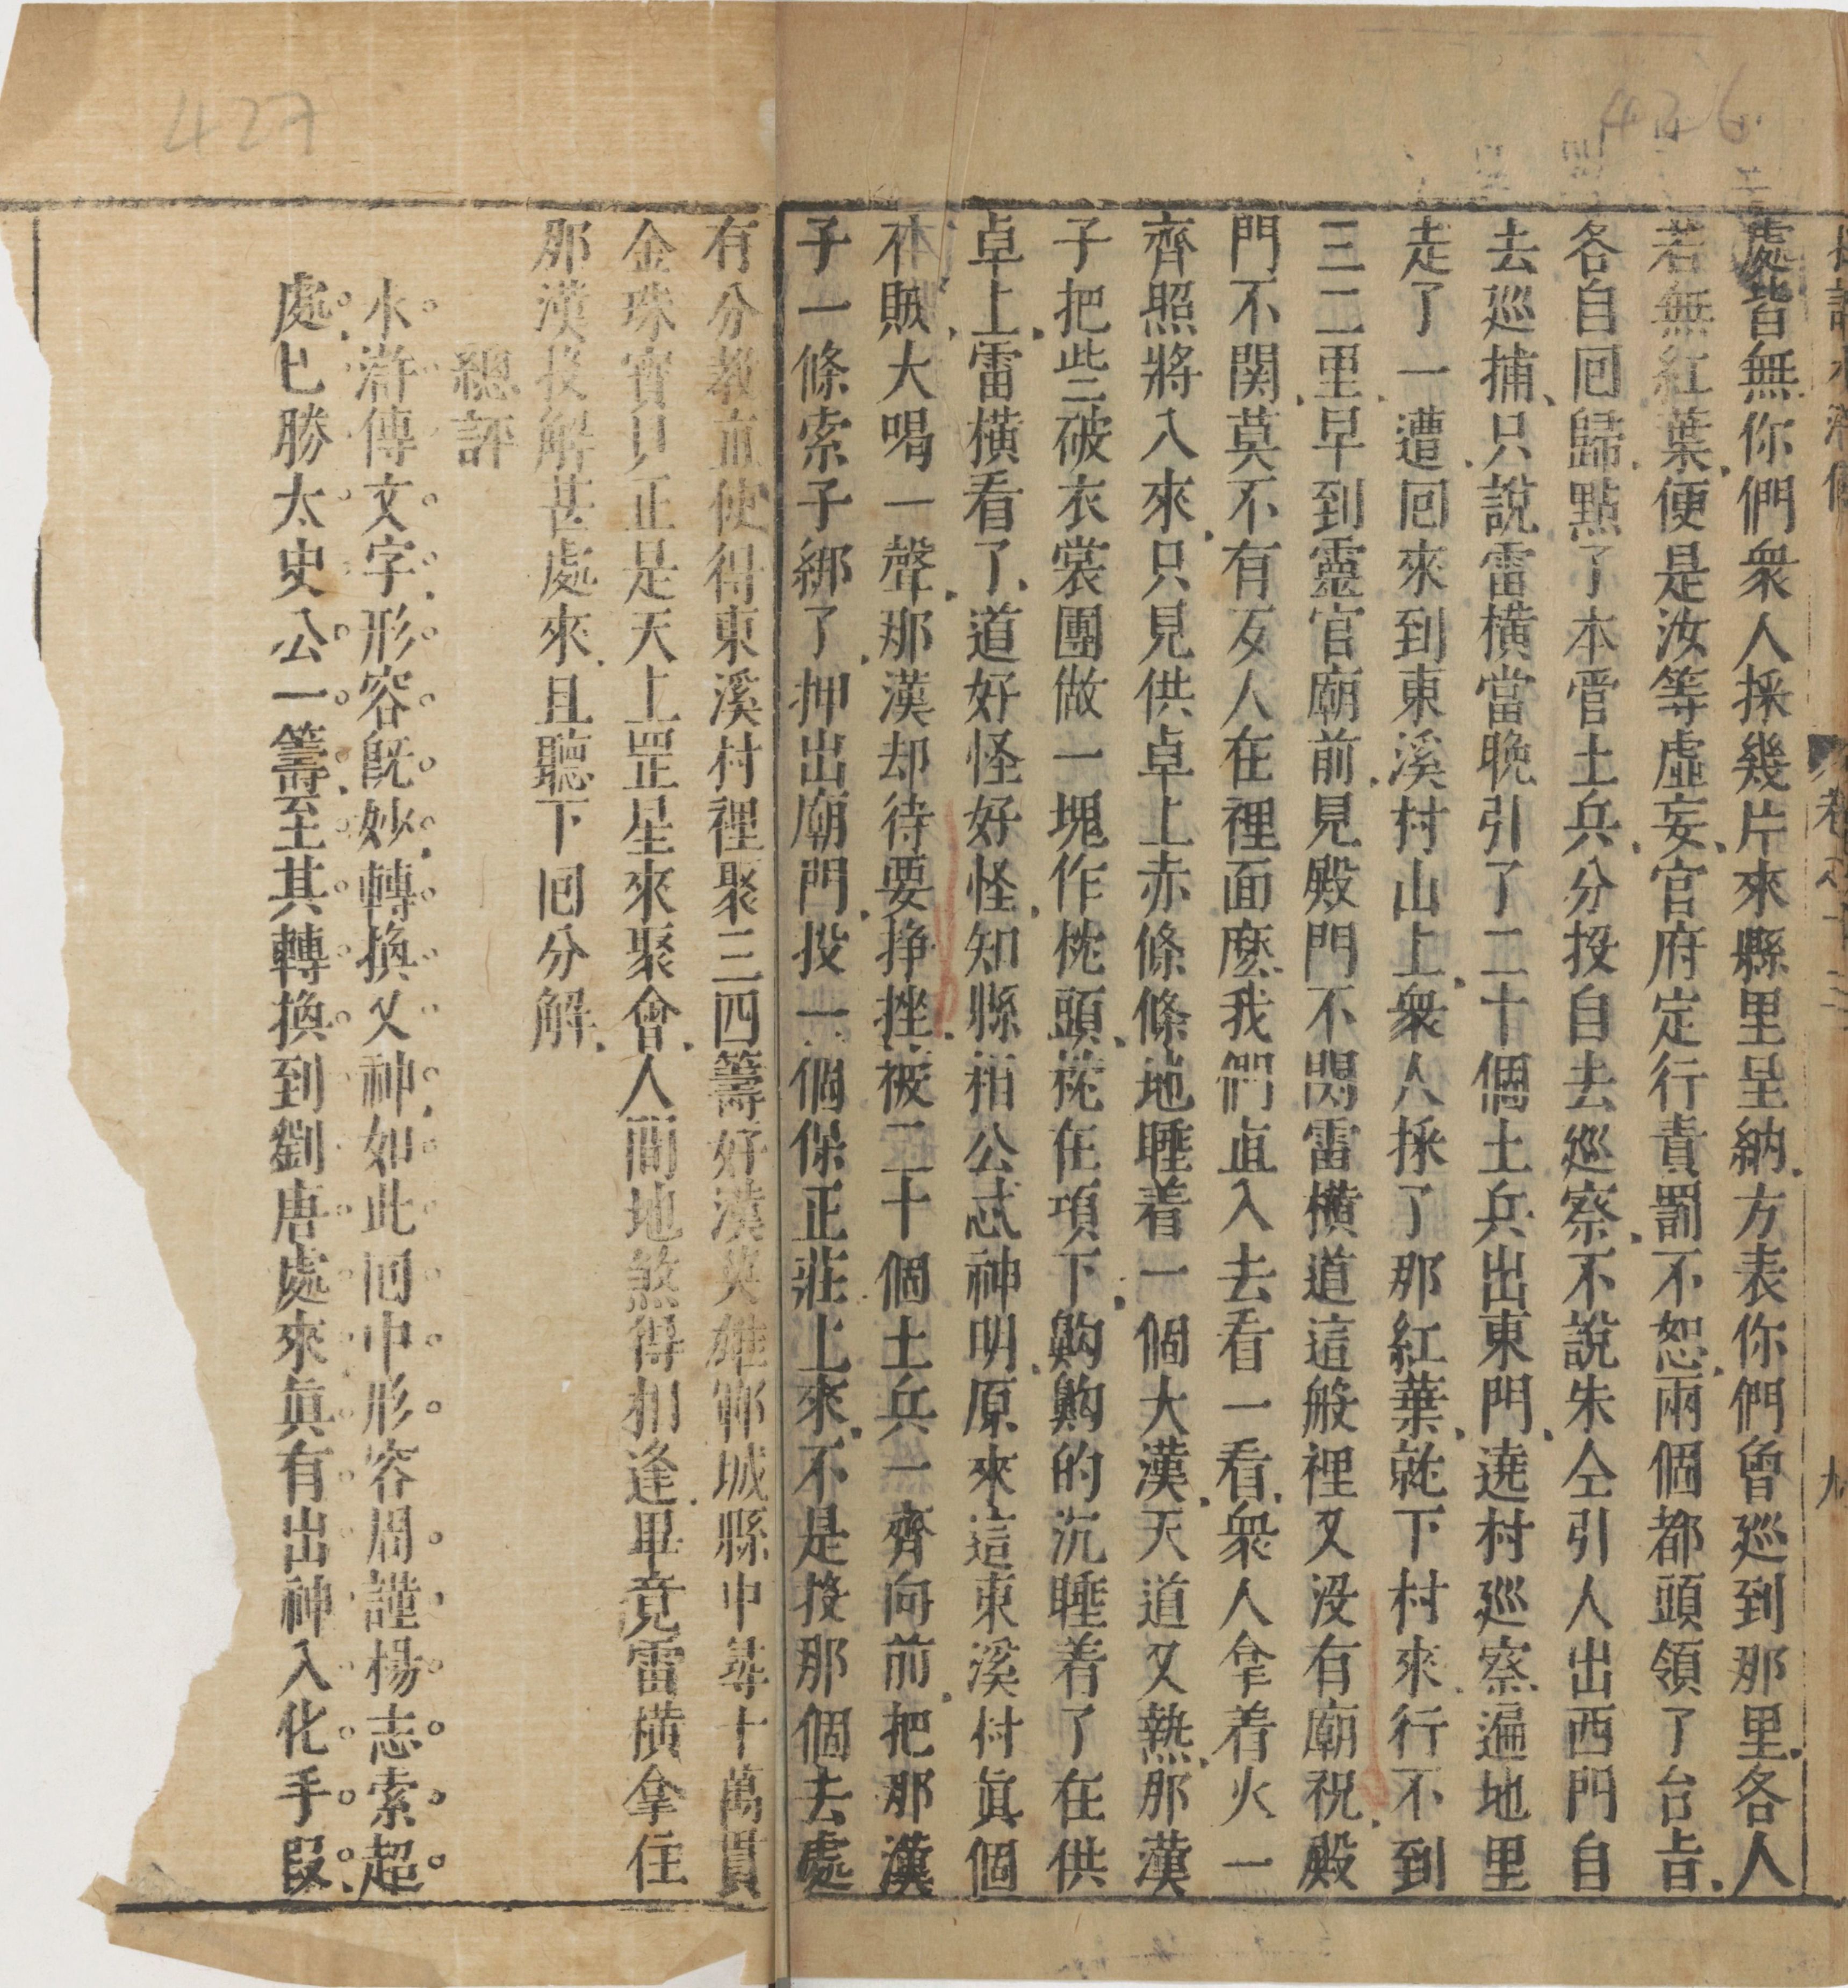 426
處皆無你們衆人採幾片來縣里呈納方表你們曾廵到那里各人
若無紅葉便是汝等虛妄官府定行責罰不恕兩個都頭領了台㫖
各自囘歸點了本管土兵分投自去廵察不說朱仝引人出西門自
去廵捕只說雷橫當晚引了二十個土兵出東門遶村廵察遍地里
走了一遭囘來到東溪村山上衆人採了那紅葉就下村來行不到
三二里早到靈官廟前見殿門不関雷橫道這般裡又没有廟祝殿
門不関莫不有歹人在裡面麽我們直入去看一看衆人拿着火一
齊照將入來只見供卓上赤條條地睡着一個大漢天道又熱那漢
子把些破衣裳團做一塊作枕頭枕在項下齁齁的沉睡着了在供
卓上雷橫看了道好怪好怪知縣相公忒神明原來這東溪村眞個
有賊大喝一聲那漢却待要挣挫被二十個土兵一齊向前把那漢
子一條索子綁了押出廟門投一個保正莊上來不是投那個去處
427
有分教直使得東溪村裡聚三四籌好漢英雄鄆城縣中尋十萬貫
金珠寳貝正是天上罡星來聚會人間地煞得相逢畢竟雷橫拿住
那漢投解甚處來且聽下囘分解
總評
水滸傳文字形容旣妙轉換又神如此囘中形容周謹楊志索超
處已勝太史公一籌至其轉換到劉唐處來眞有出神入化手叚